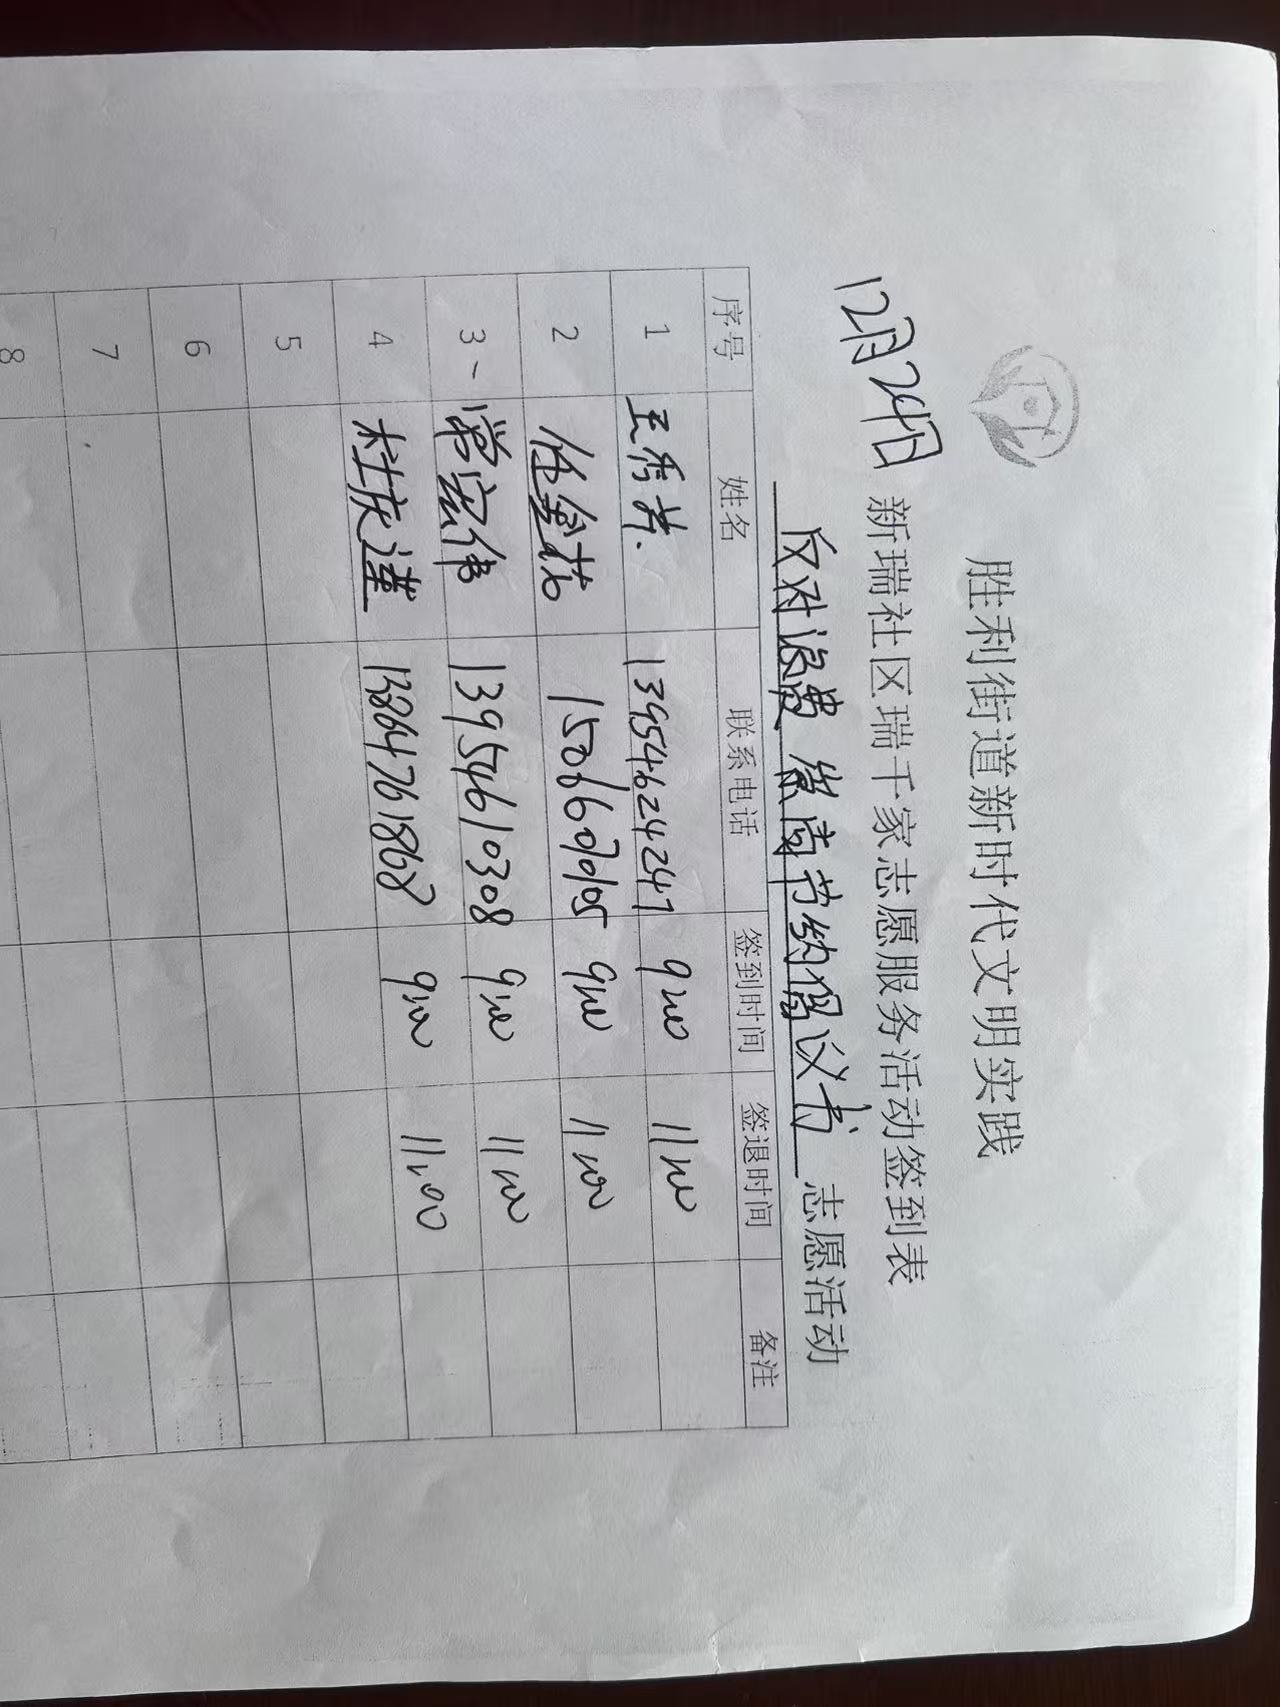 胜利街道新时代文明实践
12月24日 新瑞社区瑞千家志愿服务活动签到表
反对浪费 崇尚节约倡议书 志愿活动
序号 姓名 联系电话 签到时间 签退时间 备注
1 王秀兰 13954624247 9:00 11:00
2 任金花 9:00 11:00
3 常宏伟 13954610308 9:00 11:00
4 杜庆莲 13864761868 9:00 11:00
5
6
7
8